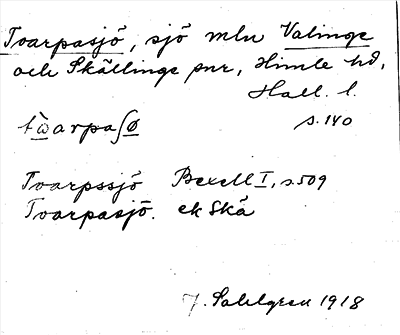 Tvarpasjö, sjö mln Valinge
och Skällinge snr, Himle hd,
Hall. l.
s. 140
Tvarpssjö Bexell I, s. 509
Tvarpasjö. ek Skä
J. Sahlgren 1918